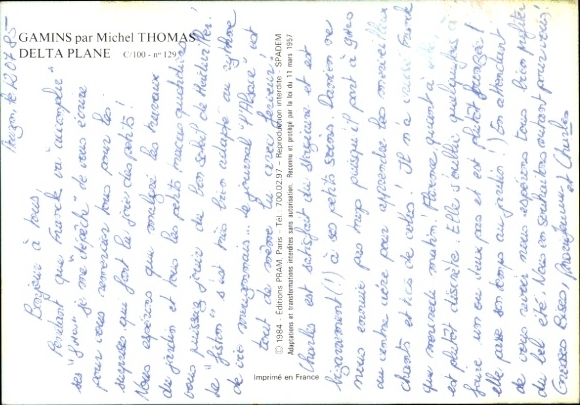 GAMINS par Michel THOMAS
DELTA PLANE C/100 - n° 129
© 1984 - Éditions PRAM, Paris - Tél. 700.02.97 - Reproduction interdite - SPADEM
Adaptations et transformations interdites sans autorisation. Reconnu et protégé par la loi du 11 mars 1957
Imprimé en France
le 20.7.85-
Bonjour à tous!
Pendant que Franck va accomplir
ses je me "dépêche" de vous écrire
pour vous remercier tous pour les
surprises qui font la joie des petits!
Nous espérons que malgré les travaux
du jardin et tous les petits tracas quotidiens
vous puissiez jouir du bon soleil de
Le "fiston" s'est très bien adapté au rythme
de vie le journal est
tout de même lu avec ferveur!
Charles est satisfait du et est
bizarrement (!) à ses petits soins. Damien ne
nous ennuie pas trop puisqu'il part à
au centre aéré pour apprendre les merveilleux
chants et tics de cettes! Il n'a Franck
que mercredi matin! Florence quant à elle
est plutôt discrète. Elle s'éveille quelquefois à
faire un ou deux pas et est plutôt
elle passe son temps au jardin!) En attendant
de vous revoir nous espérons tous bien profiter
du bel été. Nous vous souhaitons autant pour vous!
Grosses Bises, et Charles